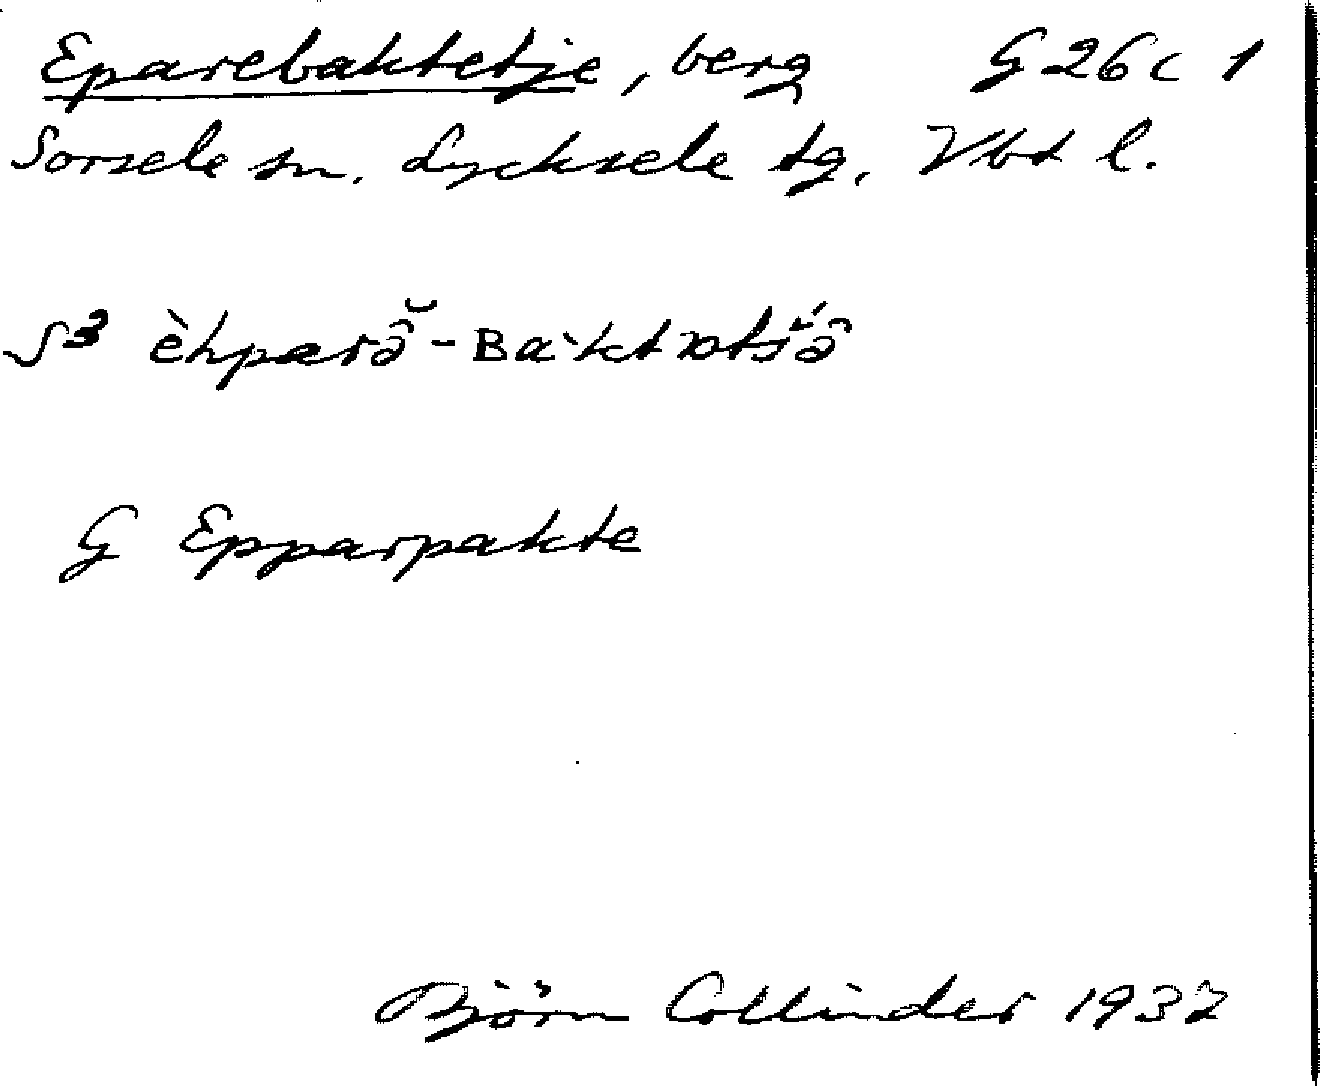 Eparebaktetje, berg G 26 c 1
Sorsele sn. Lycksele tg. Vbt l.
S³
G Epparpakte
Björn Collinder 1937